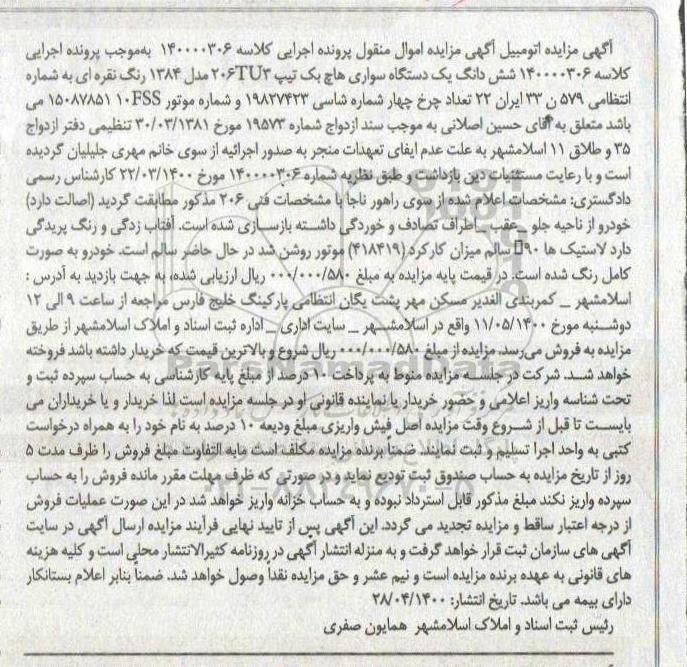 آگهی مزایده اتومبیل آگهی مزایده اموال منقول پرونده اجرایی کلاسه ۱۴۰۰۰۰۳۰۶ به‌موجب پرونده اجرایی
کلاسه ۱۴۰۰۰۰۳۰۶ شش دانگ یک دستگاه سواری هاچ بک تیپ ۲۰۶TU۳ مدل ۱۳۸۴ رنگ نقره ای به شماره
انتظامی ۵۷۹ ن ۳۳ ایران ۲۲ تعداد چرخ چهار شماره شاسی ۱۹۸۲۷۴۲۳ و شماره موتور ۱۰FSS ۱۵۰۸۷۸۵۱ می
باشد متعلق به آقای حسین اصلانی به موجب سند ازدواج شماره ۱۹۵۷۳ مورخ ۳۰/۰۳/۱۳۸۱ تنظیمی دفتر ازدواج
۳۵ و طلاق ۱۱ اسلامشهر به علت عدم ایفای تعهدات منجر به صدور اجرائیه از سوی خانم مهری جلیلیان گردیده
است و با رعایت مستثنیات دین بازداشت و طبق نظریه شماره ۱۴۰۰۰۰۳۰۶ مورخ ۲۲/۰۳/۱۴۰۰ کارشناس رسمی
دادگستری: مشخصات اعلام شده از سوی راهور ناجا با مشخصات فنی ۲۰۶ مذکور مطابقت گردید (اصالت دارد)
خودرو از ناحیه جلو _ عقب _ اطراف تصادف و خوردگی داشته بازسازی شده است. آفتاب زدگی و رنگ پریدگی
دارد لاستیک ها ۹۰٪ سالم میزان کارکرد (۴۱۸۴۱۹) موتور روشن شد در حال حاضر سالم است. خودرو به صورت
کامل رنگ شده است. در قیمت پایه مزایده به مبلغ ۰۰۰/۰۰۰/۵۸۰ ریال ارزیابی شده، به جهت بازدید به آدرس :
اسلامشهر _ کمربندی الغدیر مسکن مهر پشت یگان انتظامی پارکینگ خلیج فارس مراجعه از ساعت ۹ الی ۱۲
دوشنبه مورخ ۱۱/۰۵/۱۴۰۰ واقع در اسلامشهر _ سایت اداری _ اداره ثبت اسناد و املاک اسلامشهر از طریق
مزایده به فروش می‌رسد. مزایده از مبلغ ۰۰۰/۰۰۰/۵۸۰ ریال شروع و بالاترین قیمت که خریدار داشته باشد فروخته
خواهد شد. شرکت در جلسه مزایده منوط به پرداخت ۱۰ درصد از مبلغ پایه کارشناسی به حساب سپرده ثبت و
تحت شناسه واریز اعلامی و حضور خریدار یا نماینده قانونی او در جلسه مزایده است لذا خریدار و یا خریداران می
بایست تا قبل از شروع وقت مزایده اصل فیش واریزی مبلغ ودیعه ۱۰ درصد به نام خود را به همراه درخواست
کتبی به واحد اجرا تسلیم و ثبت نمایند. ضمناً برنده مزایده مکلف است مابه التفاوت مبلغ فروش را ظرف مدت ۵
روز از تاریخ مزایده به حساب صندوق ثبت تودیع نماید و در صورتی که ظرف مهلت مقرر مانده فروش را به حساب
سپرده واریز نکند مبلغ مذکور قابل استرداد نبوده و به حساب خزانه واریز خواهد شد در این صورت عملیات فروش
از درجه اعتبار ساقط و مزایده تجدید می گردد. این آگهی پس از تایید نهایی فرآیند مزایده ارسال آگهی در سایت
آگهی های سازمان ثبت قرار خواهد گرفت و به منزله انتشار آگهی در روزنامه کثیرالانتشار محلی است و کلیه هزینه
های قانونی به عهده برنده مزایده است و نیم عشر و حق مزایده نقداً وصول خواهد شد. ضمناً بنابر اعلام بستانکار
دارای بیمه می باشد. تاریخ انتشار: ۲۸/۰۴/۱۴۰۰
رئیس ثبت اسناد و املاک اسلامشهر همایون صفری